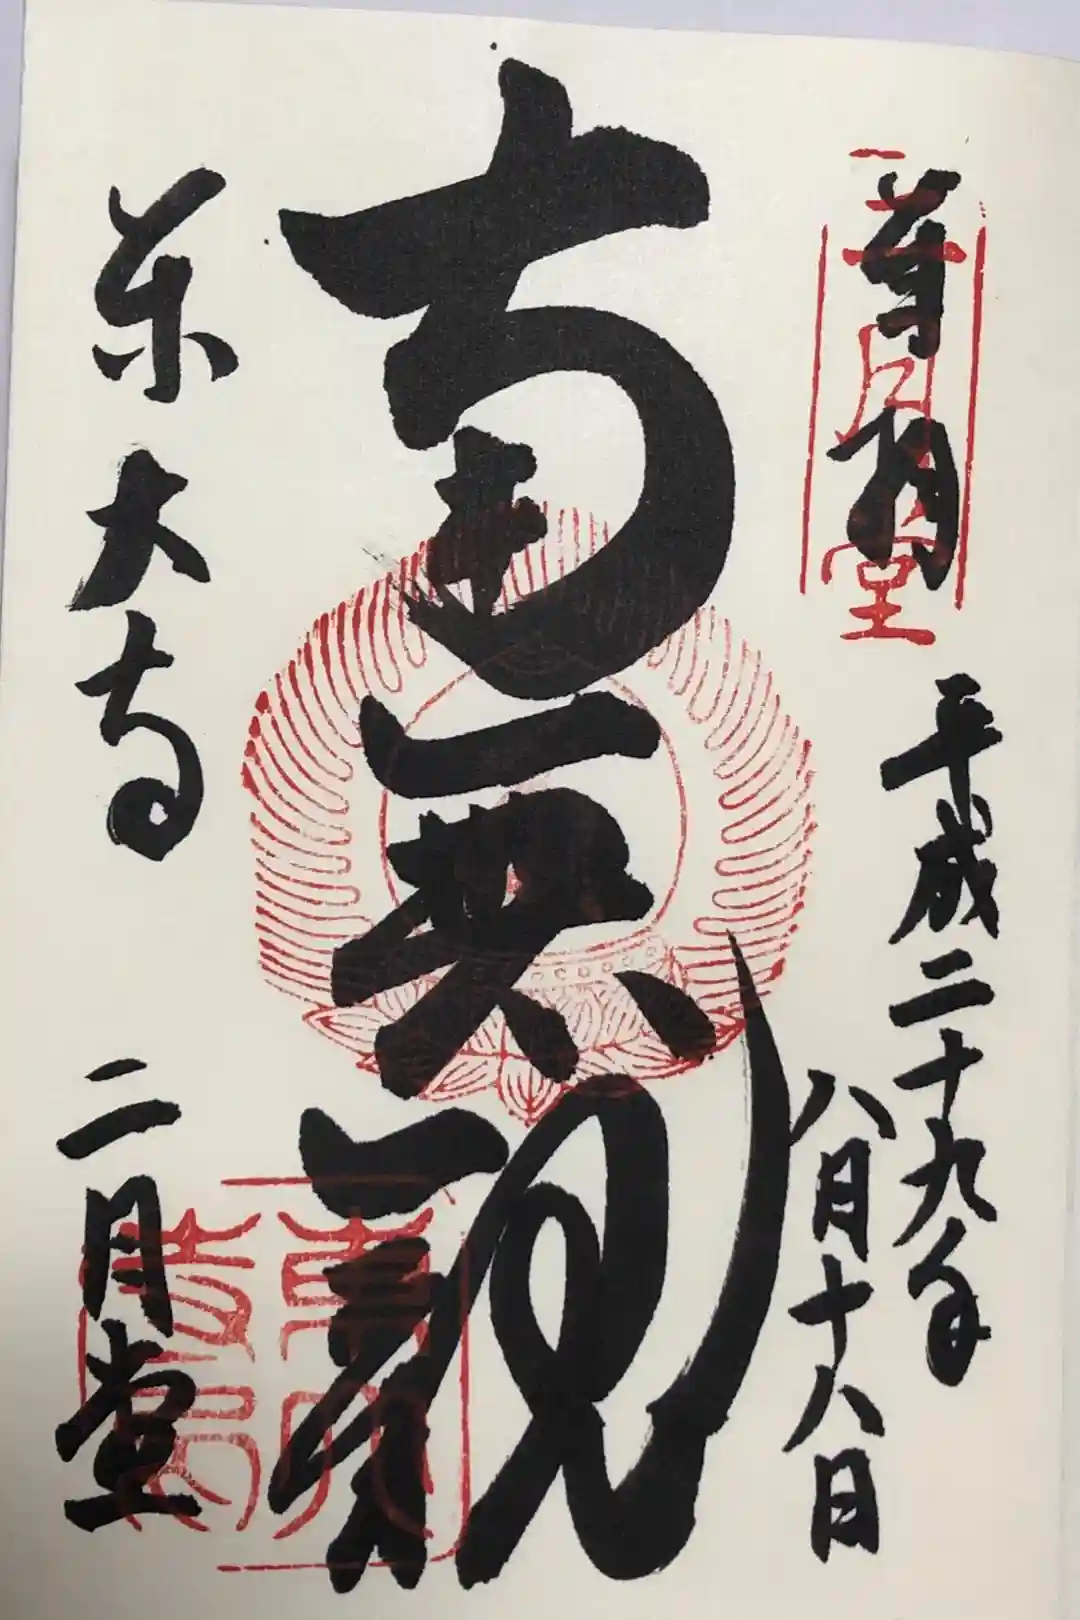 奉拝
二月堂
平成二十九年
八月十八日
南無観
東大寺
二月堂